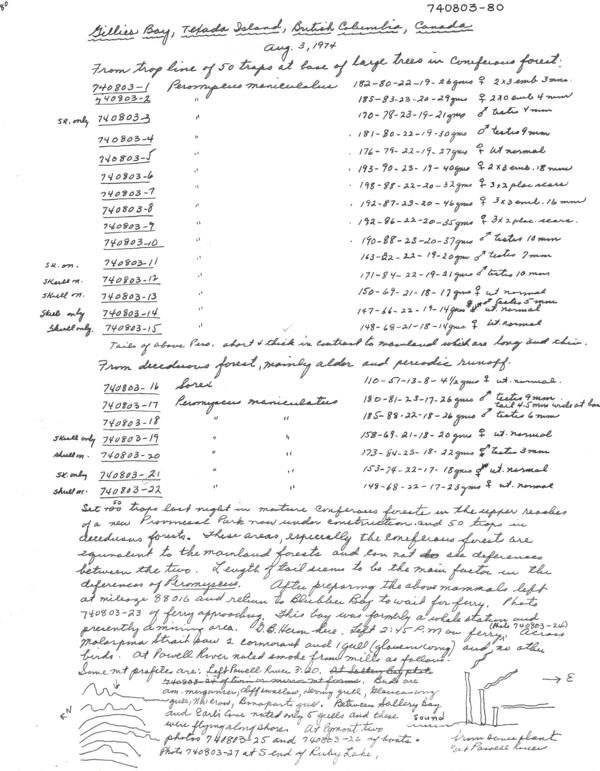 740803-80
Gillies Bay, Texada Island, British Columbia, Canada
Aug. 3, 1974
From trap line of 50 traps at base of large trees in coniferous forest.
740803-1 Peromyscus maniculatus 182-80-22-19-26gms ♀ 2x3 emb 3mm.
740803-2 " 185-83-23-20-29gms ♀ 2x0 emb 4mm
sk. only 740803-3 " 170-78-23-19-21gms ♂ testis 4mm
740803-4 " 181-80-22-19-30gms ♂ testes 9mm
740803-5 " 176-79-22-19-27gms ♀ ut normal
740803-6 " 193-90-23-19-40gms ♀ 2x3 emb. 18 mm
740803-7 " 198-88-22-20-32gms ♀ 3x2 plac scars
740803-8 " 192-87-23-20-46gms ♀ 3x3 emb. 16 mm
740803-9 " 192-86-22-20-35gms ♀ 3x2 plac. scars.
740803-10 190-88-23-20-37gms ♂ testes 10mm
sk. on. 740803-11 " 163-82-22-19-20gms ♂ testes 7mm
skull n. 740803-12 " 171-84-22-19-21gms ♂ testes 10 mm
skull n. 740803-13 " 150-69-21-18-17gms ♀ ut normal
skull only 740803-14 " 147-66-22-19-14gms ut. normal
skull only. 740803-15 " 148-69-21-18-14gms ♀ ut. normal
Tails of above Pero. short & thick in contrast to mainland which are long and thin.
From deciduous forest, mainly alder and periodic runoff.
740803-16 Sorex 110-57-13-8-4½gms ♀ ut. normal.
740803-17 Peromyscus maniculatus 180-81-23-17-26gms ♂ testes 9mm.
tail 4.5 mm wide at base
740803-18 " " 185-88-22-18-26gms ♂ testis 6mm
skull only 740803-19 " 158-69-21-18-20gms ♀ ut. normal
skull n. 740803-20 " " 173-84-23-18-22gms ♂ testis 3mm
sk. only 740803-21 " 153-74-22-17-18gms ut. normal
skull on. 740803-22 " " 148-68-22-17-23gms ♀ ut. normal
Set 50 traps last night in mature coniferous forests in the upper reaches
of a new Provincial Park now under construction and 50 traps in
deciduous forests. These areas, especially the coniferous forest are
equivalent to the mainland forests and can not see diferences
between the two. Length of tail seems to be the main factor in the
diferences of Peromyscus. After preparing the above mammals left
at mileage 88016 and return to Blubber Bay to wait for ferry. Photo
740803-23 of ferry approaching. This bay was formbly a whale station and
presently a mining area. G.B. Heron here. Left 2:45 P.M on ferry. (Photo 740803-24) Across
Malaspina Strait saw 2 cormorant and 1 gull (glaucouswing) and no other
birds. At Powell River noted smoke from mills as follows.
Some mt profiles are: Left Powell River 3:20. At Saltery Bay
Birds are
am. merganser, cliff swallow, Herring gull, Glaucouswing
gull, NW crow, Bonaparte gull. Between Saltery bay
and Earls Cove noted only 5 gulls and these
were flying along shore. At Egmont two
photos 740803-25 and 740803-26 of boats.
Photo 740803-27 at S end of Ruby Lake,
→ E
sound
from pulp plant
at Powell River